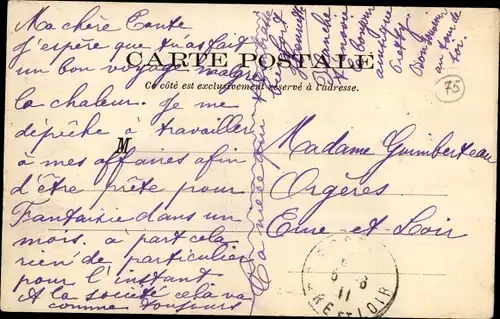 Ma chère Tante
J'espère que tu as fait
un bon voyage malgré
la chaleur. Je me
dépêche à travailler
à mes affaires afin
d'être prête pour
Fantaisie dans un
mois. à part cela
rien de particulier
pour l'instant.
A la société cela va
comme toujours
Ta nièce qui
Blanche
bonjour
CARTE POSTALE
Ce côté est exclusivement réservé à l'adresse.
M
75
Madame Guimberteau
Orgères
Eure-et-Loir
6 - 8
11
ET LOIR